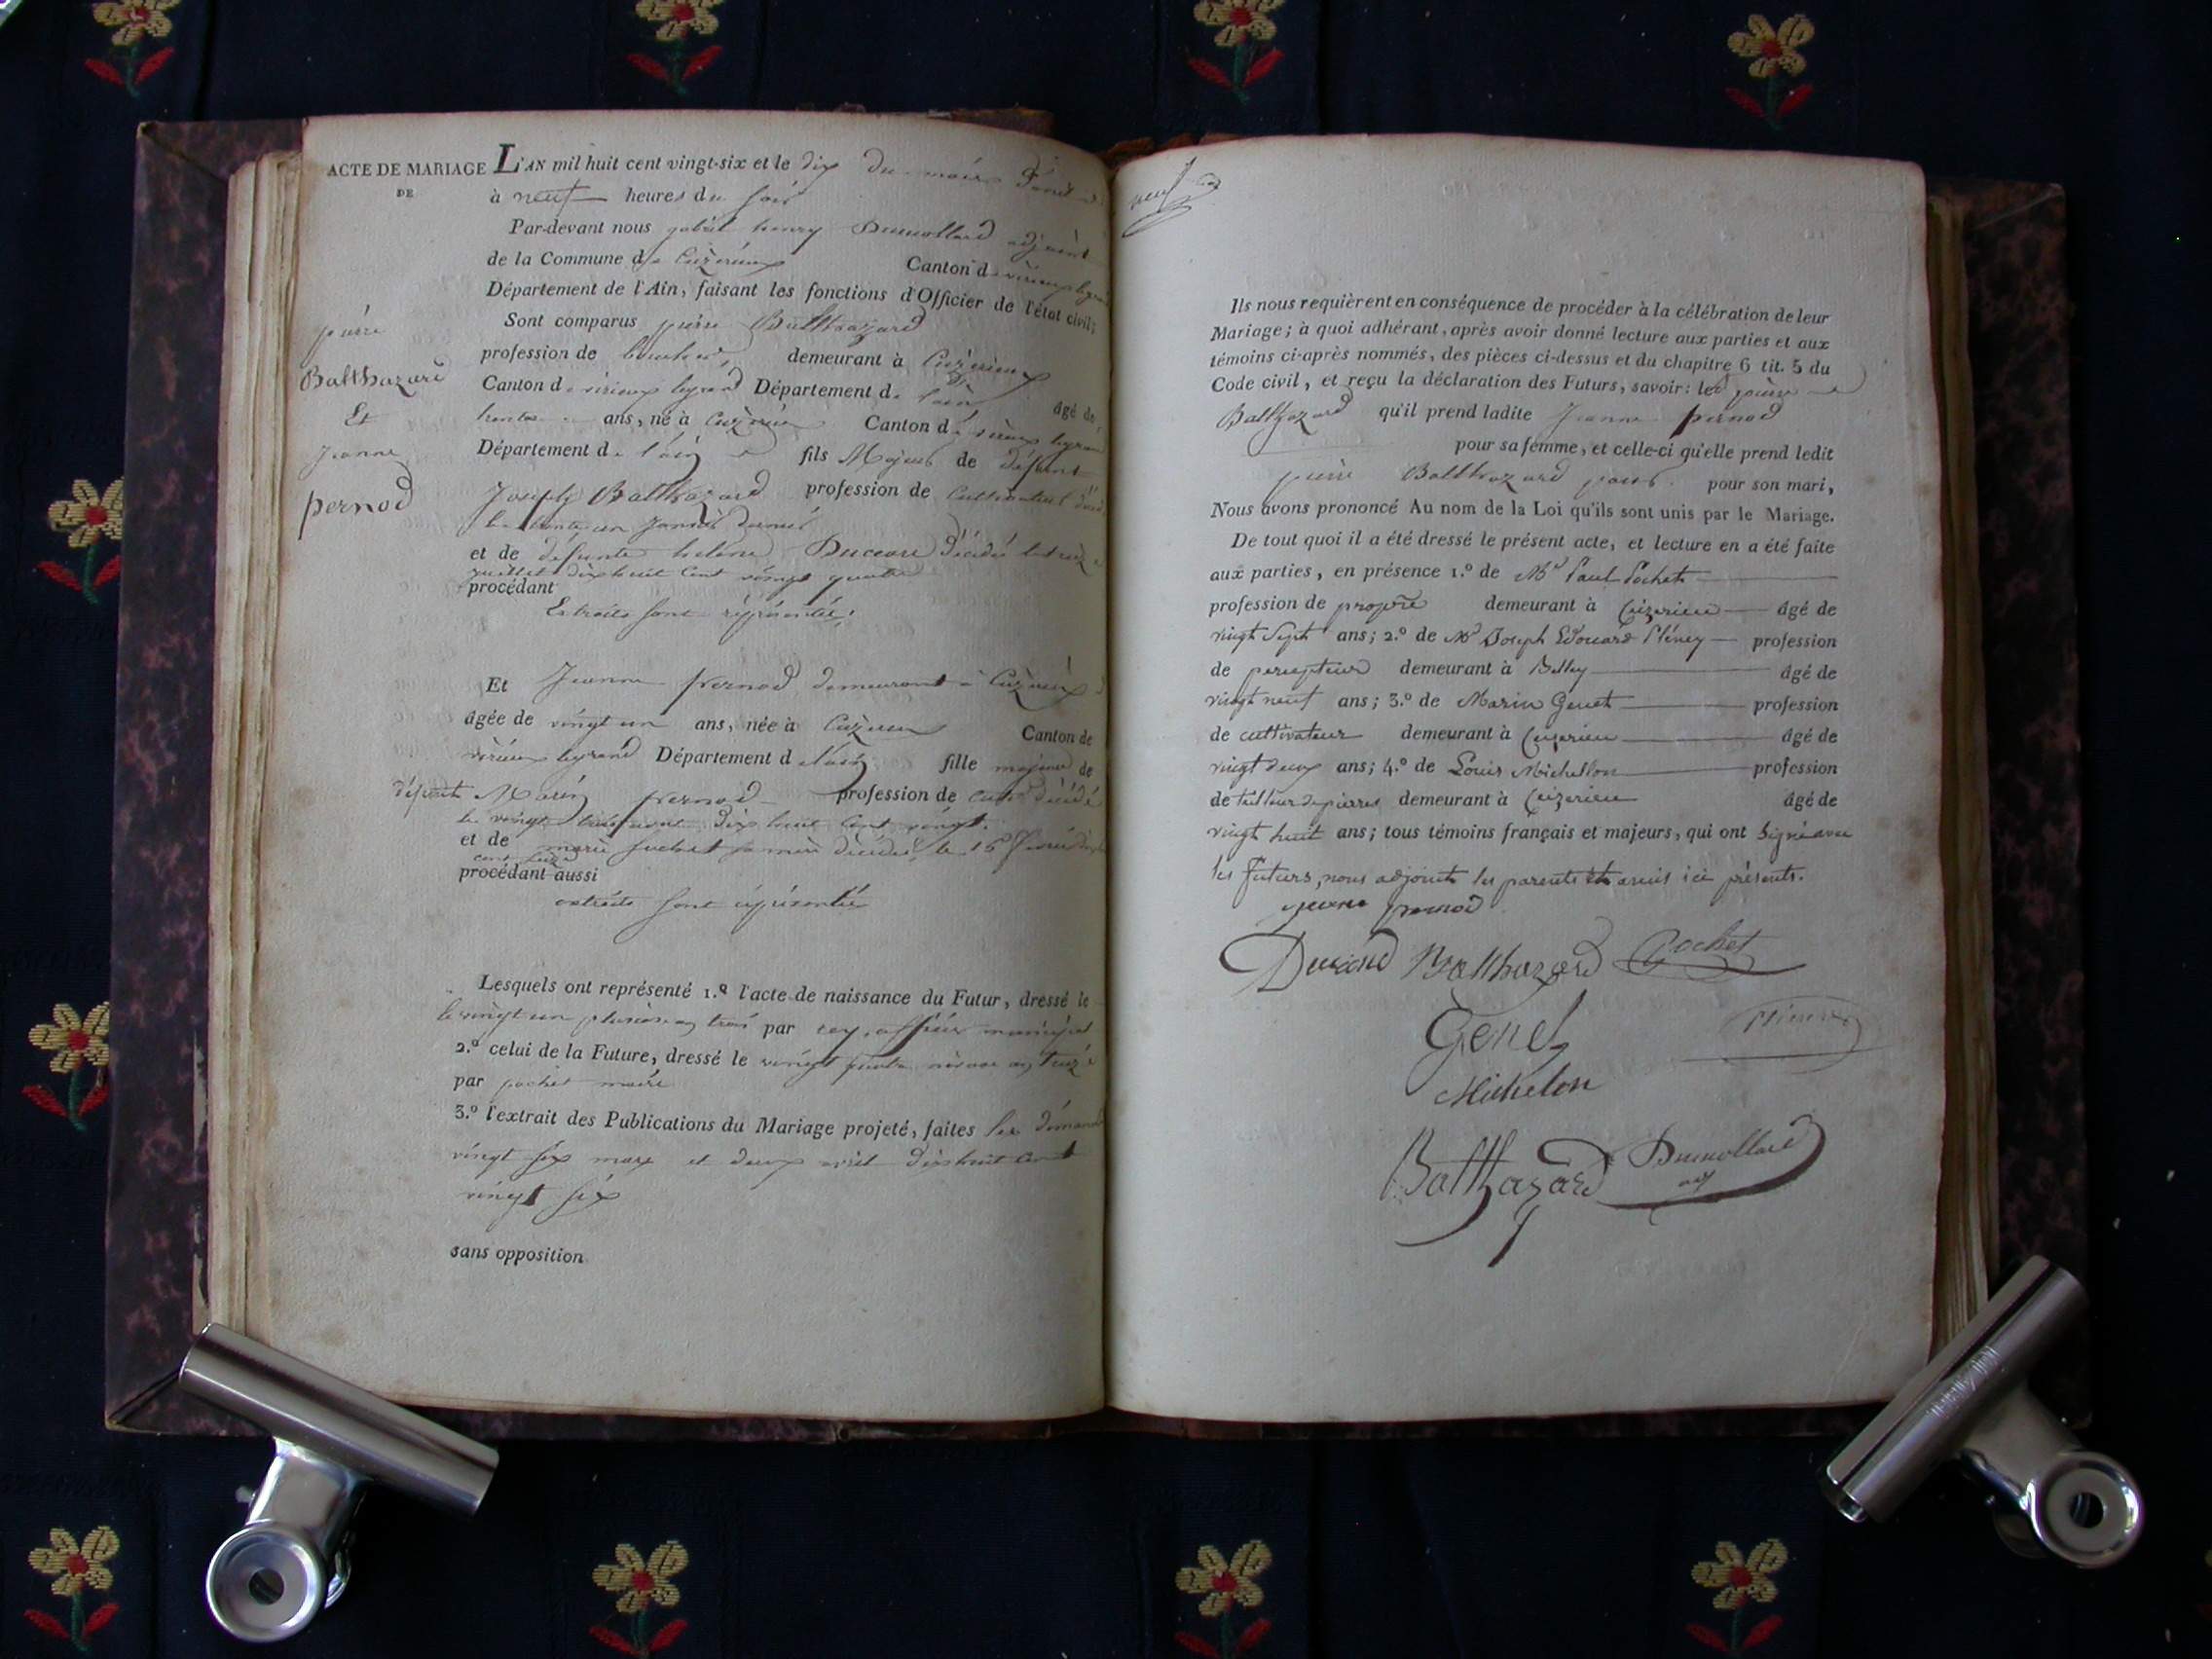 ACTE DE MARIAGE
DE
pierre
Balthazard
Et
Jeanne
pernod
L'AN mil huit cent vingt-six et le dix du mois d'avril
à neuf heures du soir
Par-devant nous gabriel henry Dumollard adjoint
de la Commune de Cuzieux Canton de virieux legrand
Département de l'Ain, faisant les fonctions d'Officier de l'état civil;
Sont comparus pierre Balthazard
profession de demeurant à Cuzieux
Canton de virieux legrand Département de l'ain âgé de
trente ans, né à Canton de virieux legrand
Département de l'ain fils Majeur de défunt
Joseph Balthazard profession de Cultivateur
le trente un Janvier dernier
et de défunte helene décédée le treize
juillet dix huit cent vingt quatre
procédant
Extraits sont représentés
Et Jeanne pernod demeurant à
âgée de vingt un ans, née à Canton de
virieux legrand Département de l'ain fille majeure de
défunt Marin pernod profession de décédé
le vingt dix huit cent vingt
et de marie sa mere décédée le 16
procédant aussi
extraits sont représentés
Lesquels ont représenté 1.º l'acte de naissance du Futur, dressé le
le vingt un pluviose an trois par officier municipal
2.º celui de la Future, dressé le vingt quatre nivose an treize
par pochet maire
3.º l'extrait des Publications du Mariage projeté, faites les dimanches
vingt six mars et deux avril dix huit cent
vingt six
sans opposition
neuf
Ils nous requièrent en conséquence de procéder à la célébration de leur
Mariage; à quoi adhérant, après avoir donné lecture aux parties et aux
témoins ci-après nommés, des pièces ci-dessus et du chapitre 6 tit. 5 du
Code civil, et reçu la déclaration des Futurs, savoir: led pierre
Balthazard qu'il prend ladite Jeanne pernod
pour sa femme, et celle-ci qu'elle prend ledit
pierre Balthazard pour pour son mari,
Nous avons prononcé Au nom de la Loi qu'ils sont unis par le Mariage.
De tout quoi il a été dressé le présent acte, et lecture en a été faite
aux parties, en présence 1.º de Mr Paul Pochet
profession de propre demeurant à Cuizerieu âgé de
vingt sept ans; 2.º de Mr Joseph Edouard Pléney profession
de percepteur demeurant à Belley âgé de
vingt neuf ans; 3.º de Marin Genet profession
de cultivateur demeurant à Cuizerieu âgé de
vingt deux ans; 4.º de Louis Michellon profession
de tailleur de pierres demeurant à Cuizerieu âgé de
vingt huit ans; tous témoins français et majeurs, qui ont signé avec
les futurs, nous adjoint les parents et amis ici présents.
jeanne pernod
Balthazard Pochet
Genet
Michelon
Balthazard Dumollard
adj